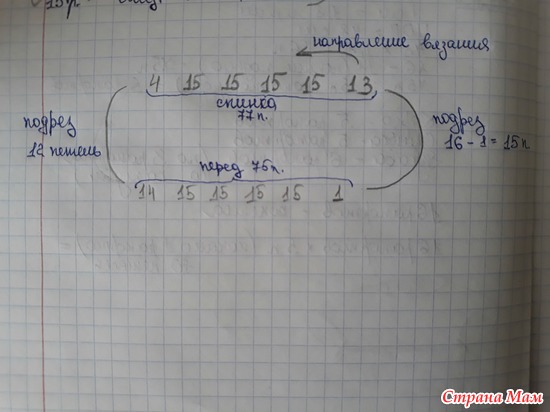 15р
направление вязания
4 15 15 15 15 13
спинка
77п.
подрез
12 петель
подрез
16 - 1 = 15п
перед 75п.
14 15 15 15 15 1
Страна Мам